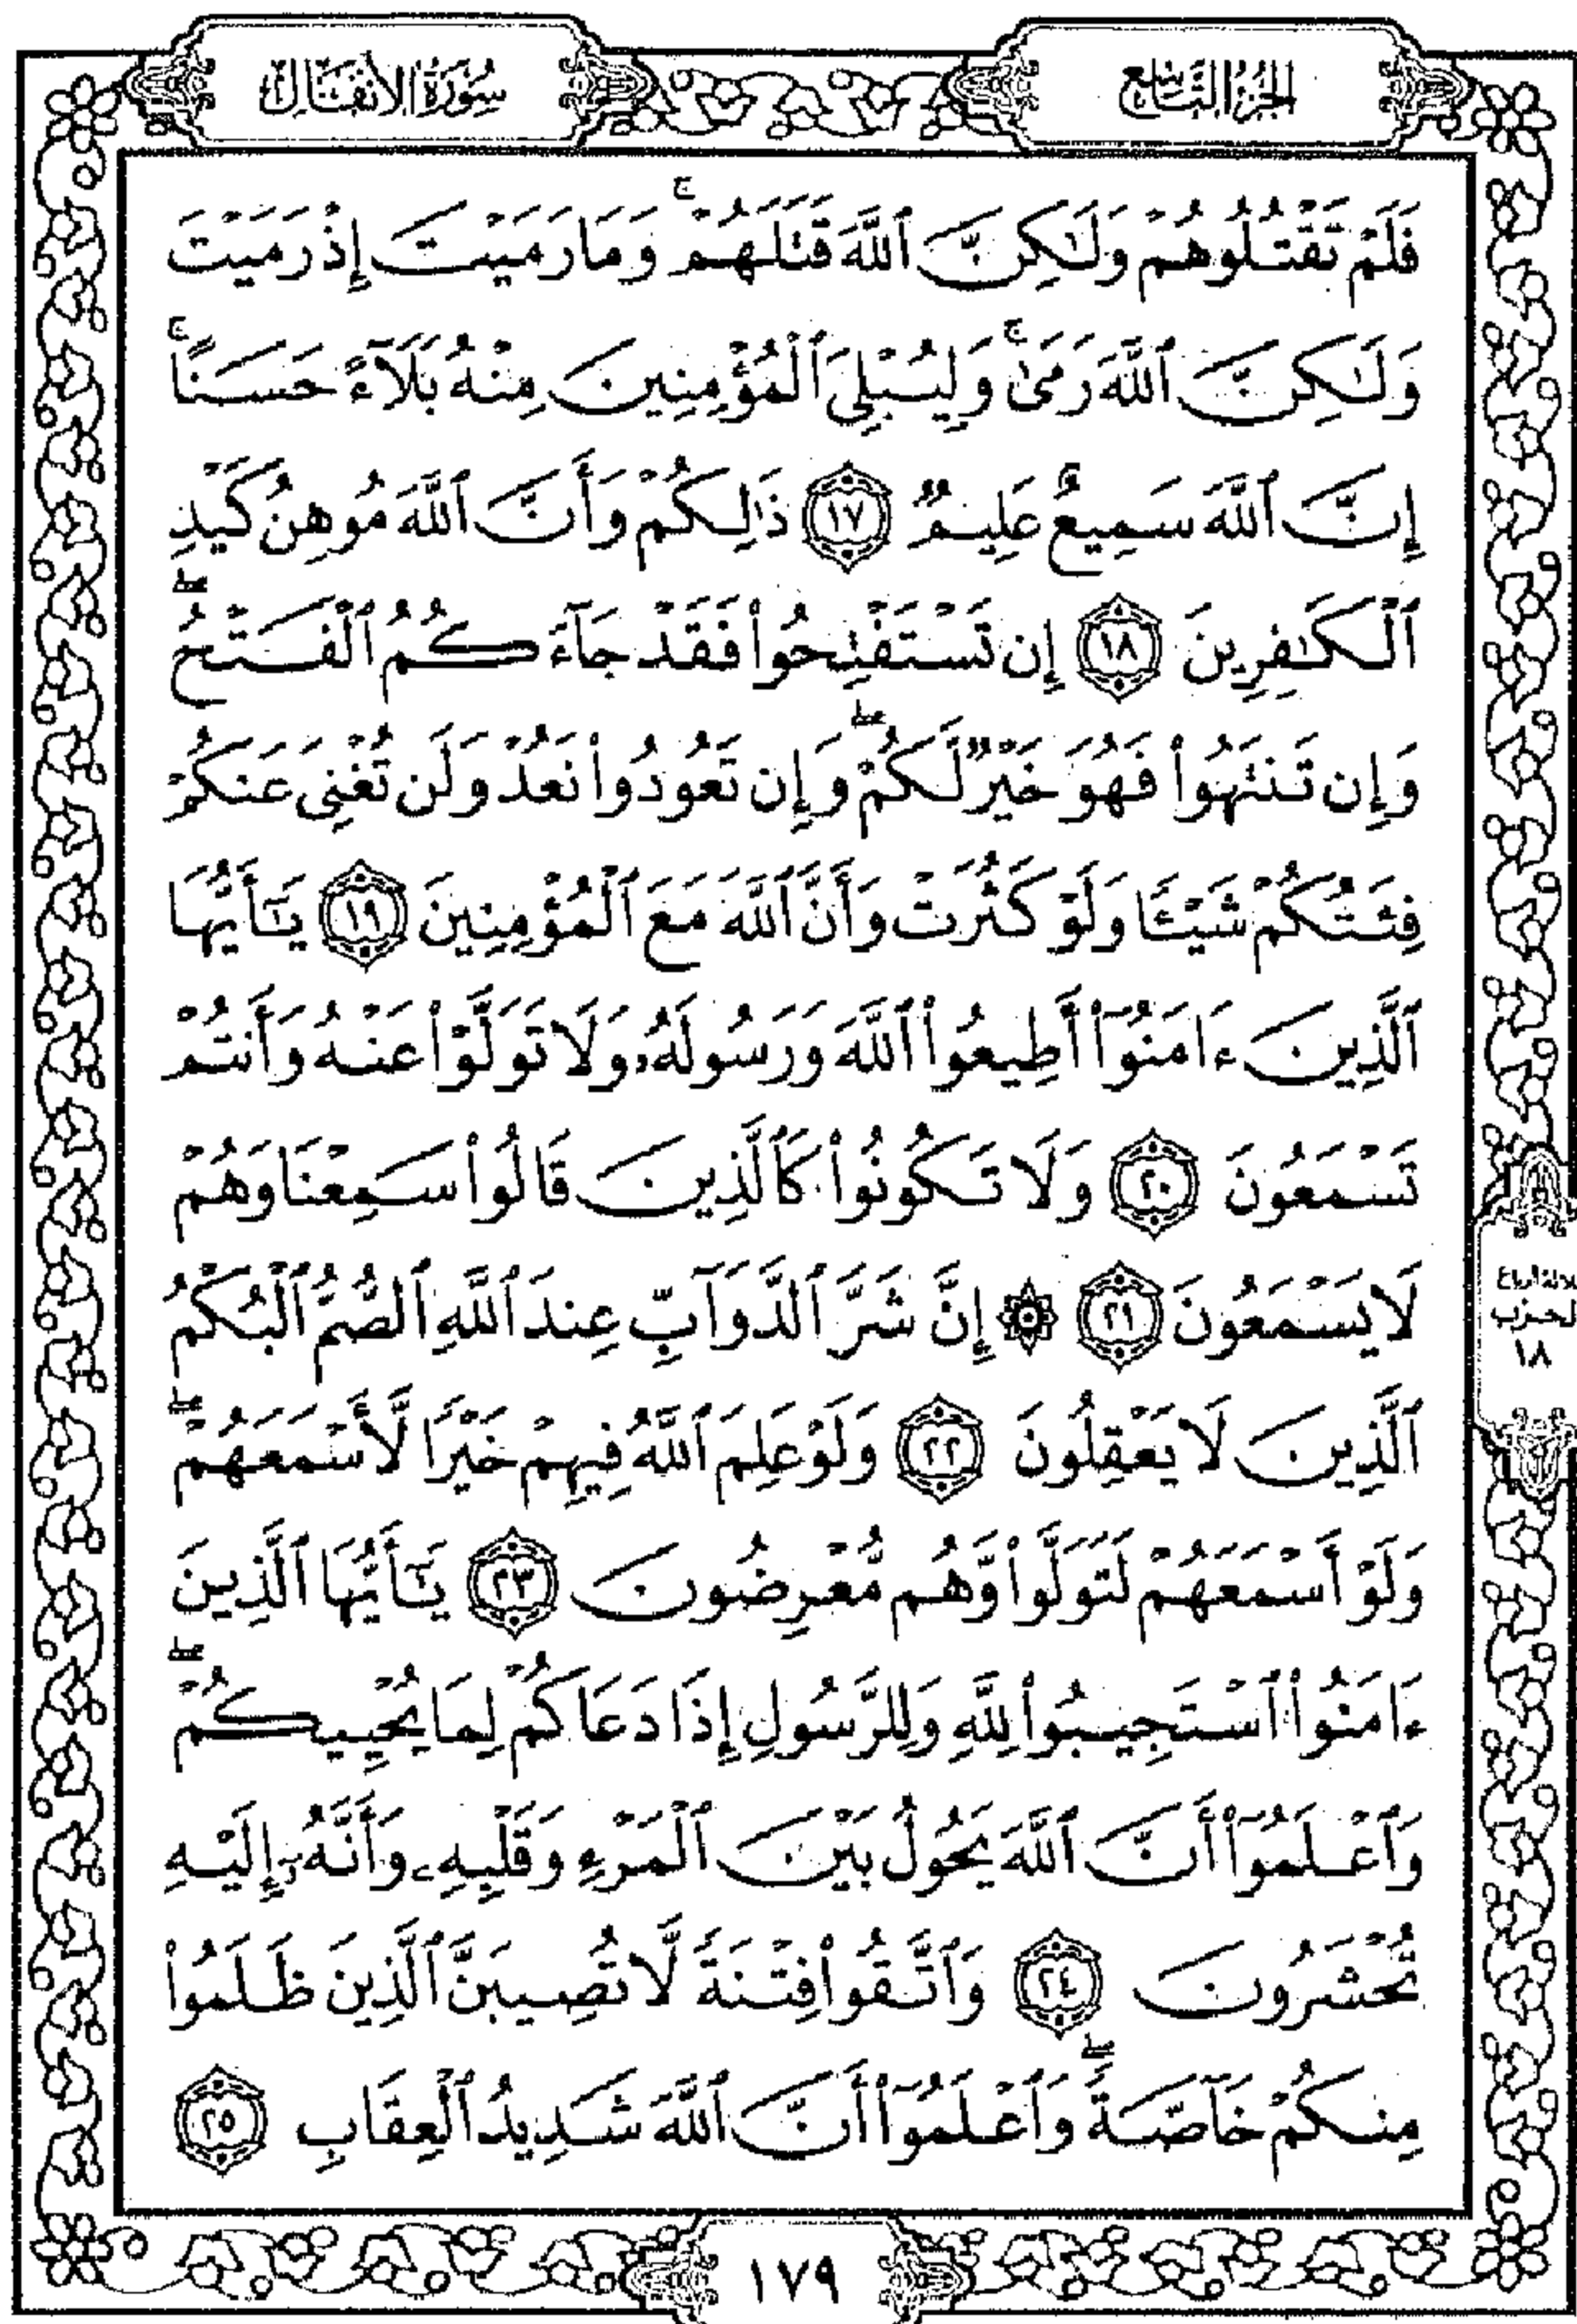 الجزء التاسع
سورة الأنفال
فَلَمْ تَقْتُلُوهُمْ وَلَٰكِنَّ ٱللَّهَ قَتَلَهُمْۚ وَمَا رَمَيْتَ إِذْ رَمَيْتَ
وَلَٰكِنَّ ٱللَّهَ رَمَىٰۚ وَلِيُبْلِىَ ٱلْمُؤْمِنِينَ مِنْهُ بَلَآءً حَسَنًاۚ
إِنَّ ٱللَّهَ سَمِيعٌ عَلِيمٌ ١٧ ذَٰلِكُمْ وَأَنَّ ٱللَّهَ مُوهِنُ كَيْدِ
ٱلْكَٰفِرِينَ ١٨ إِن تَسْتَفْتِحُوا۟ فَقَدْ جَآءَكُمُ ٱلْفَتْحُۖ
وَإِن تَنتَهُوا۟ فَهُوَ خَيْرٌ لَّكُمْۖ وَإِن تَعُودُوا۟ نَعُدْ وَلَن تُغْنِىَ عَنكُمْ
فِئَتُكُمْ شَيْـًٔا وَلَوْ كَثُرَتْ وَأَنَّ ٱللَّهَ مَعَ ٱلْمُؤْمِنِينَ ١٩ يَٰٓأَيُّهَا
ٱلَّذِينَ ءَامَنُوٓا۟ أَطِيعُوا۟ ٱللَّهَ وَرَسُولَهُۥ وَلَا تَوَلَّوْا۟ عَنْهُ وَأَنتُمْ
تَسْمَعُونَ ٢٠ وَلَا تَكُونُوا۟ كَٱلَّذِينَ قَالُوا۟ سَمِعْنَا وَهُمْ
لَا يَسْمَعُونَ ٢١ ۞ إِنَّ شَرَّ ٱلدَّوَآبِّ عِندَ ٱللَّهِ ٱلصُّمُّ ٱلْبُكْمُ
ٱلَّذِينَ لَا يَعْقِلُونَ ٢٢ وَلَوْ عَلِمَ ٱللَّهُ فِيهِمْ خَيْرًا لَّأَسْمَعَهُمْۖ
وَلَوْ أَسْمَعَهُمْ لَتَوَلَّوا۟ وَّهُم مُّعْرِضُونَ ٢٣ يَٰٓأَيُّهَا ٱلَّذِينَ
ءَامَنُوا۟ ٱسْتَجِيبُوا۟ لِلَّهِ وَلِلرَّسُولِ إِذَا دَعَاكُمْ لِمَا يُحْيِيكُمْۖ
وَٱعْلَمُوٓا۟ أَنَّ ٱللَّهَ يَحُولُ بَيْنَ ٱلْمَرْءِ وَقَلْبِهِۦ وَأَنَّهُۥٓ إِلَيْهِ
تُحْشَرُونَ ٢٤ وَٱتَّقُوا۟ فِتْنَةً لَّا تُصِيبَنَّ ٱلَّذِينَ ظَلَمُوا۟
مِنكُمْ خَآصَّةًۖ وَٱعْلَمُوٓا۟ أَنَّ ٱللَّهَ شَدِيدُ ٱلْعِقَابِ ٢٥
الحزب
١٨
١٧٩